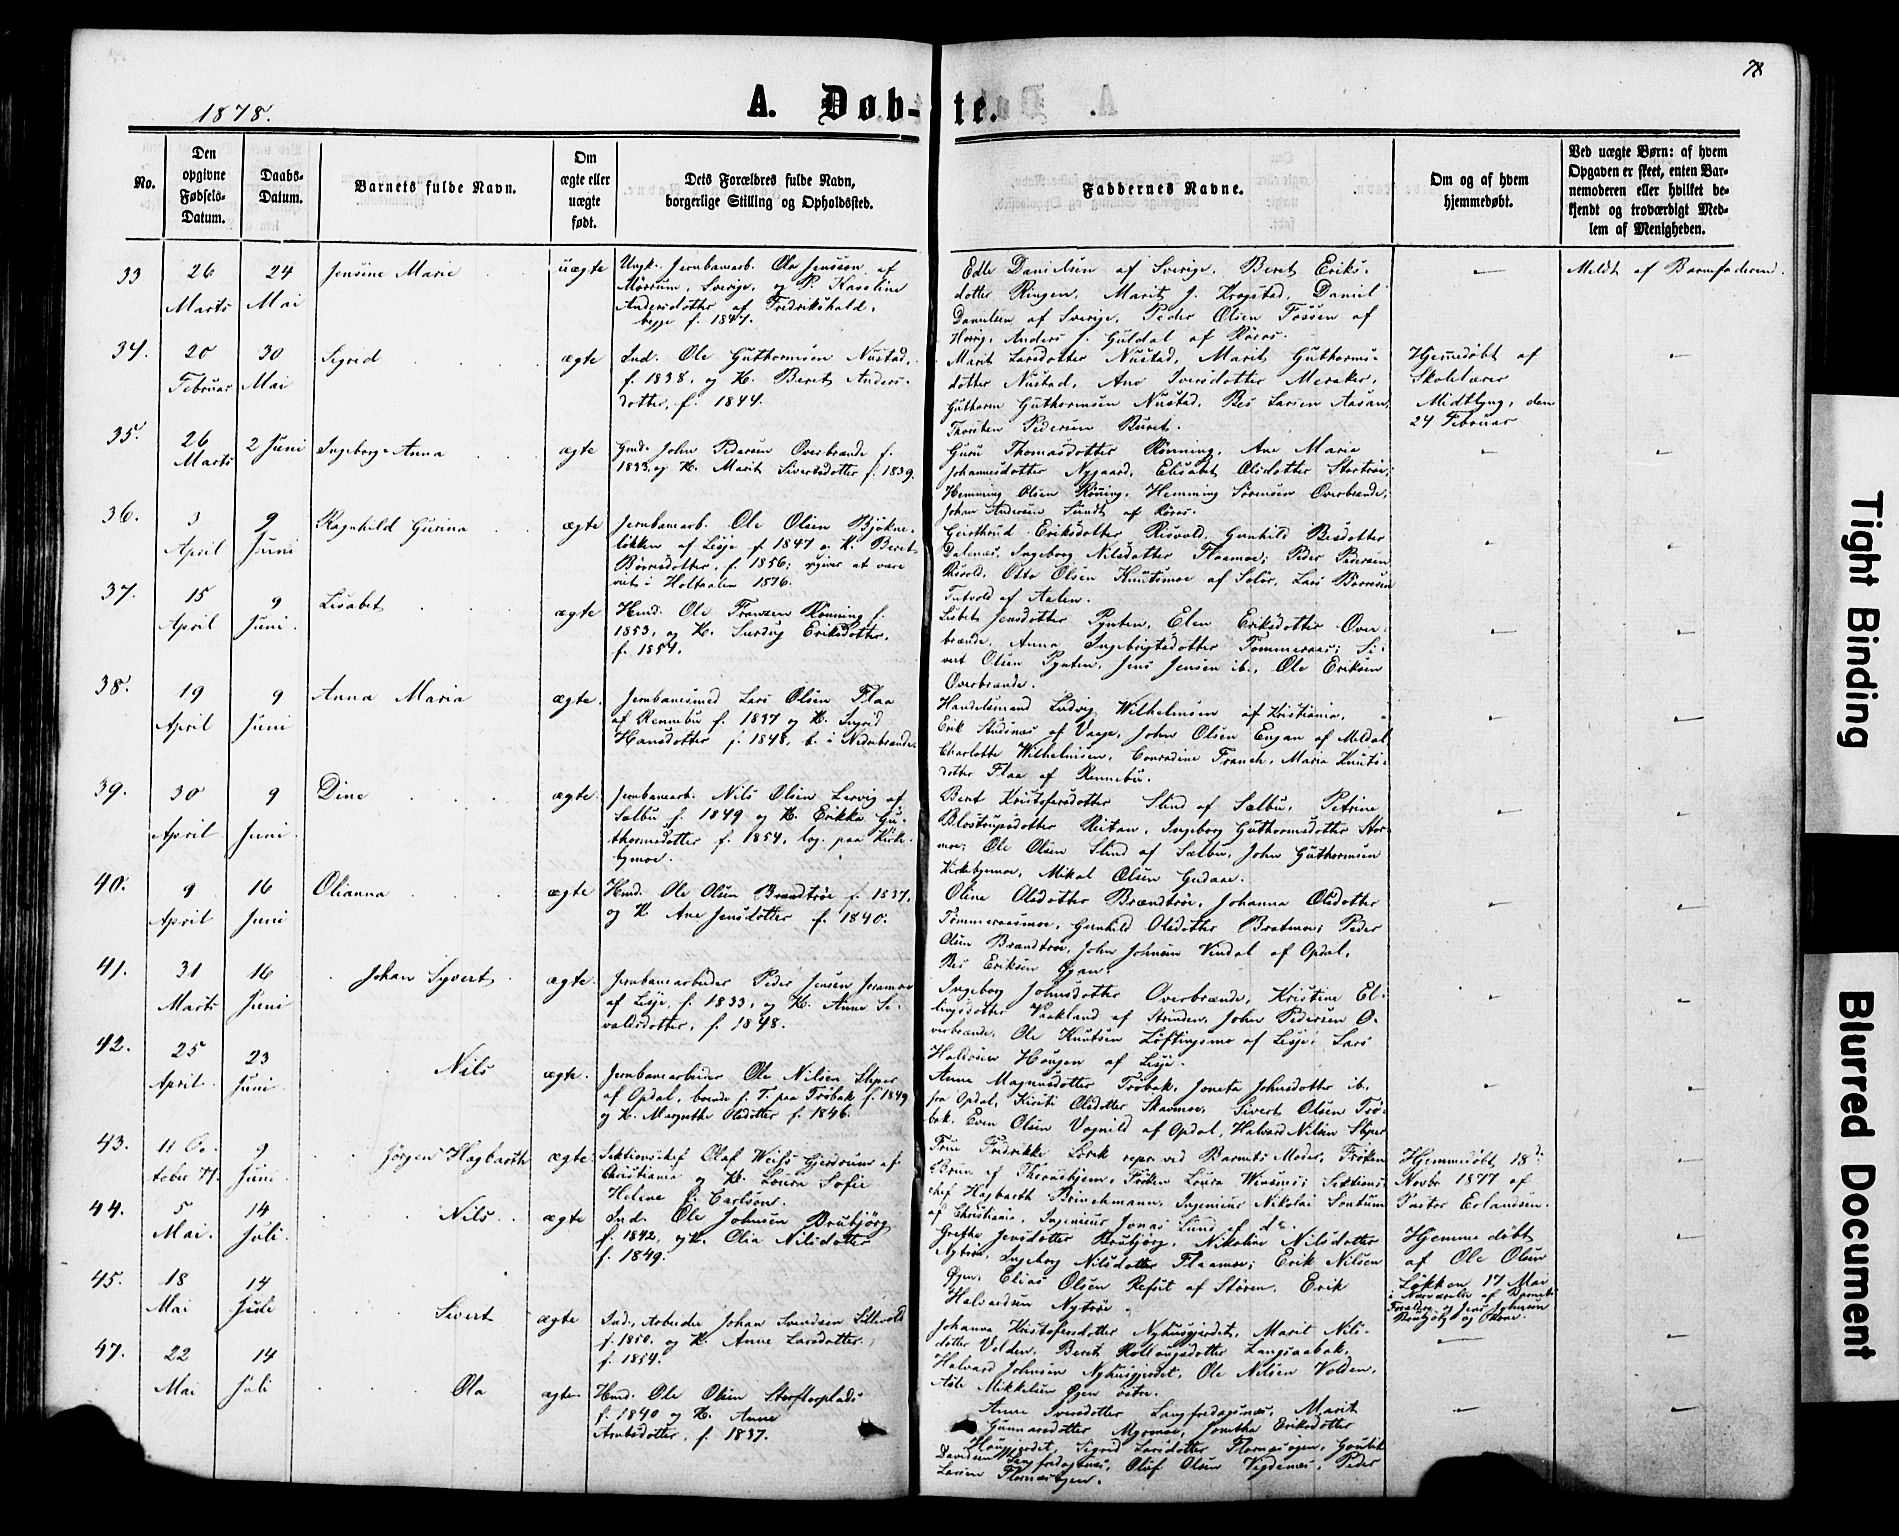 78
1878.
A. Døb-te.
No.
Den opgivne Fødsels-Datum.
Daabs-Datum.
Barnets fulde Navn.
Om ægte eller uægte født.
Dets Forældres fulde Navn, borgerlige Stilling og Opholdssted.
Faddernes Navne.
Om og af hvem hjemmedøbt.
Ved uægte Børn: af hvem Opgaven er skeet, enten Barnemoderen eller hvilket bekjendt og troværdigt Medlem af Menigheden.
33
26 Marts
24 Mai
Jensine Marie
uægte
Ungk. Jernbanearb. Ola Jensson af
Mörrum, Sverige, og P. Karoline
Andersdotter af Fredrikshald,
begge f. 1847.
Danielsen af Sverige, Beret Eriks-
dotter Ringen, Marit J. Krogstad, Daniel
Danielsen af Sverige, Peder Olsen Fossen af
Horg, Anders J. Guldal af Röros.
—
Meldt af Barnefaderen.
34.
20 Februar
30 Mai
Sigrid
ægte
Ind. Ole Guthormsen Nustad,
f. 1838, og K. Beret Anders-
dotter, f. 1844.
Marit Larsdotter Nustad, Marit Guthorms-
dotter Nustad, Ane Iversdotter Meraker,
Guthorm Guthormsen Nustad, Bes Larsen Aasan,
Thorsten Pedersen Buret.
Hjemmedøbt af
Skolelærer
Midtlyng, den
24 Februar
—
35.
26 Marts
2 Juni
Ingeborg Anna
ægte
Gmd. John Pedersen Overbrænde f.
1833, og K. Marit Sivertsdotter f. 1839.
Guru Thomasdotter Rönning, Ane Maria
Johannesdotter Nygaard, Elisabet Olsdotter Stortröe;
Hemming Olsen Röning, Hemming Sörensen Overbrænde,
Johan Andersen Sundt af Röros.
—
—
36.
3 April
9 Juni
Ragnhild Gurina
ægte
Jernbanearb. Ole Olsen Bjökne-
løkken af Lesje f. 1847 o. K. Beret
Börresdotter, f. 1856; viet i Holtaalen 1876.
Gjertrud Eriksdotter Risvold, Gunhild Besdotter
Dalmos, Ingeborg Nilsdotter Flaamoe; Peder Pedersen
Risvold, Otto Olsen Knutsmoe af Solör, Lars Börresen
af Aalen.
—
—
37.
15 April
9 Juni
Lisabet
ægte
Hmd. Ole Franzen Rönning f.
1853, og K. Eriksdotter,
f. 1854.
Lisbet Jensdotter Pynten, Elen Eriksdotter Over-
brænde, Anna Ingebrigtsdotter Tömmeraas; Si-
vert Olsen Pynten, Jens Jensen ib., Ole Eriksen
Overbrænde.
—
—
38.
19 April
9 Juni
Anna Maria
ægte.
Jernbanesmed Lars Olsen Flaa
af Rennebu f. 1837 og K. Sigrid
Hansdotter f. 1848, b. i Nedrebrænde.
Handelsmand Ludvig Wilhelmsen af Kristiania,
Erik Studsnæs af Vaage, John Olsen Engan af Meldal
Charlotte Wilhelmsen, Conradine Franck, Maria Knuts-
dotter Flaa af Rennebu.
—
—
39.
30 April
9 Juni
Dine
ægte.
Jernbanearb. Nils Olsen Lervig af
Sælbu f. 1849 og K. Erikka Gu-
thormsdotter f. 1854, log. paa Kirke-
bymoe.
Beret Kristofersdotter Slind af Sælbu, Petrine
Blostrupsdotter Reitan, Ingeborg Guthormsdotter Stor-
moe; Ole Olsen Slind af Sælbu, John Guthormsen
Kirkebymoe, Mikal Olsen Gudaae.
—
—
40.
9 April
16 Juni
Olianna
ægte
Hmd. Ole Olsen Brændtröe f. 1837,
og K. Ane Jensdotter f. 1840.
Oline Olsdotter Brændtröe, Johanna Olsdotter
Tömmeraasmoe, Gunhild Olsdotter Bratmoe; Peder
Olsen Brændtröe, John Johnsen Vindal af Opdal,
Bes Eriksen Øyan.
—
—
41.
31 Marts
16 Juni
Johan Syvert
ægte.
Jernbanearbeider Peder Jensen Joramoe
af Lesje, f. 1833, og K. Anne Si-
valdsdotter, f. 1848.
Ingeborg Johnsdotter Overbrænde, Kristine El-
lingsdotter af Strinden, John Pedersen O-
verbrænde, Ole Knutsen Löftingsmo af Lesje, Lars
Halvorsen Haugen af Lesje.
—
—
42.
25 April
23 Juni
Nils
ægte.
Jernbanearbeider Ole Nilsen
af Opdal, boende f. T. paa Tröbak f. 1849
og K. Margrethe Olsdotter f. 1846.
Anne Magnusdotter Tröbak, Joneta Johnsdotter ib.
fra Opdal, Kirsti Olsdotter Skavmoe, Sivert Olsen Trö-
bak, Even Olsen Vognild af Opdal, Halvard Nilsen
—
—
43.
11 Octobr 77.
9 Juni
Jörgen Hagbarth
ægte.
Sektionschef Olaf Weils Gjerdrum af
Christiania og K. Laura Sofie
Helene f. Carlson.
Frue Fredrikke Lerik repr. ved Barnets Moder, Fröken
Brun af Throndhjem, Fröken Laura Winsnes; Sektions-
chef Hagbarth Brinchmann, Ingeniør Nikolai Sontum
af Christiania, Ingeniør Jonas Lund af do.
Hjemmedøbt 18de
Novbr 1877 af
Pastor Erlandsen.
—
44.
5 Mai.
14 Juli.
Nils
ægte
Ind. Ole Johnsen Brubjörg
f. 1842, og K. Olia Nilsdotter
f. 1849.
Grethe Jensdotter Brubjörg, Nikoline Nilsdotter
Nytröe, Ingeborg Nilsdotter Flaamoe; Erik Nilsen
Øyen, Elias Olsen Refset af Stören, Erik
Halvardsen Nytröe.
Hjemmedøbt
af Ole Olsen
Løkken 17 Mai
i Nærværelse af Barnets
Forældre og Jens Johnsen
Brubjörg og Kone.
—
45.
18 Mai
14 Juli
Sivert
ægte
Ind. Arbeider Johan Svendsen Lillevold
f. 1850, og K. Anne Larsdotter
f. 1854.
Johanna Kristofersdotter Nyhusgjerdet, Marit Nils-
dotter Volden, Beret Rollaugsdotter Langsaabak,
Halvard Johnsen Nyhusgjerdet, Ole Nilsen Volden,
Mikkelsen Øyen östre.
—
—
47.
22 Mai
14 Juli
Ola
ægte
Hmd. Ole Olsen Storfloplads
f. 1840 og K. Anne
Arntsdotter, f. 1837.
Anne Iversdotter Langfredagsnæs, Marit
Gunnarsdotter Myrmoe, Jonetha Eriksdotter
Haugjerdet, Sigrid Larsdotter
Davidsen Langfredagsnæs, Oluf Olsen Vigdenæs, Peder
Larsen
—
—
Tight Binding
Blurred Document